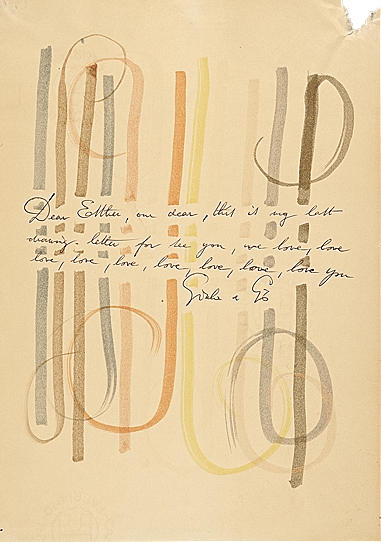 Dear Esther, our dear, this is my last
drawing. letter for see you, we love, love
love, love, love, love, love, love, love you